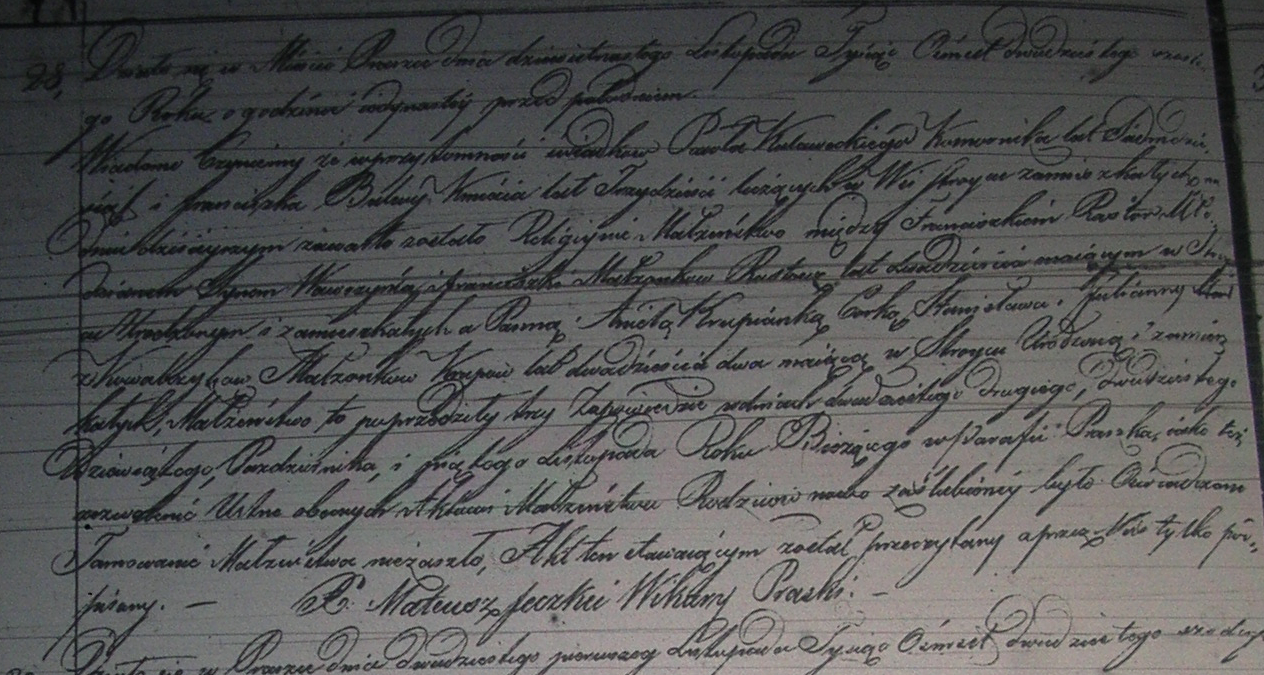 28, Działo się w Mieście Praszce dnia dziewietnastego Listopada Tysiąc Ośmset dwudziestego szoste-
go Roku, o godzinie iedynastej przed południem.
Wiadomo Czyniemy że wprzytomności świadków Pawła Kuławeckiego Komornika lat Siedmdzie-
siąt i franciszka Kmiecia lat Trzydzieści liczących w Wsi Stroycu zamieszkałych, na
dniu dzisieyszym zawarte zostało Religiynie Małżeństwo między Franciszkiem Mło-
dzianem Synem Wawrzyńca i franciszki Małżonków lat dwadzieścia maiącym w Stroy-
cu Urodzonym i zamieszkałych a Panną Anielą Krupianką Corką Stanisława i Julianny
z Kowalczyków Małżonków Krupów lat dwadzieścia dwa maiącą w Stroycu Urodzoną i zamiesz-
kałych, Małżeństwo to poprzedziły trzy Zapowiedzie wdniach dwudziestego drugiego, dwudziestego
Dziewiątego, Pazdziernika, i piątego Listopada Roku Bieżącego w Parafii Praszka, iako też
zezwolenie Ustne obecnych Aktowi Małżeństwa Rodziców nowo zaślubioney było Oświadczone
Tamowanie Małżeństwa niezaszło, Akt ten stawaiącym został przeczytany a przez Nas tylko pod-
pisany. — X. Mateusz Wikary Praski. —
Działo się w Praszce dnia dwudziestego pierwszego Listopada Tysiąc Ośmset dwudziestego